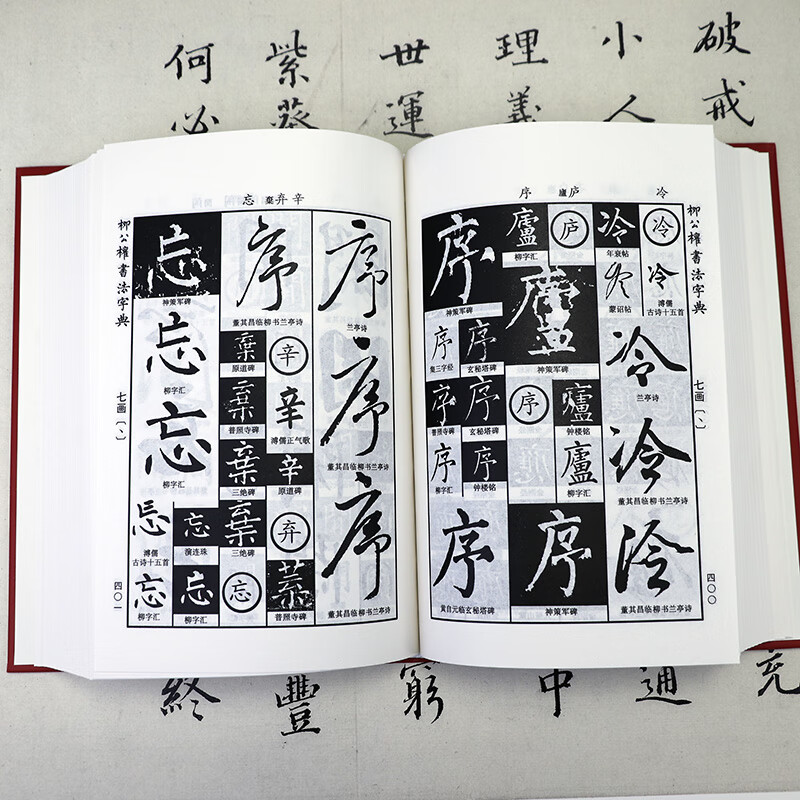 破戒
小人
理義
世運
紫葵
何必
冷
廬庐
序
柳公權書法字典
七画〔丶〕
四〇〇
冷
冷
溥儒
古诗十五首
冷
兰亭诗
冷
董其昌临柳书兰亭诗
冷
董其昌临柳书兰亭诗
冷
年衰帖
冷
蒙诏帖
庐
廬
柳字汇
廬
神策军碑
廬
钟楼铭
廬
柳字汇
序
序
神策军碑
序
神策军碑
序
玄秘塔碑
序
集三字经
序
玄秘塔碑
序
普照寺碑
序
钟楼铭
序
柳字汇
序
黄自元临玄秘塔碑
辛
棄弃
忘
柳公權書法字典
七画〔丶〕
四〇一
序
兰亭诗
序
董其昌临柳书兰亭诗
序
董其昌临柳书兰亭诗
序
董其昌临柳书兰亭诗
辛
辛
溥儒正气歌
辛
原道碑
弃
棄
普照寺碑
棄
原道碑
棄
普照寺碑
棄
三绝碑
棄
三绝碑
忘
忘
神策军碑
忘
柳字汇
忘
柳字汇
忘
演连珠
忘
溥儒
古诗十五首
忘
柳字汇
忘
柳字汇
充
通
中
窮
豐
終